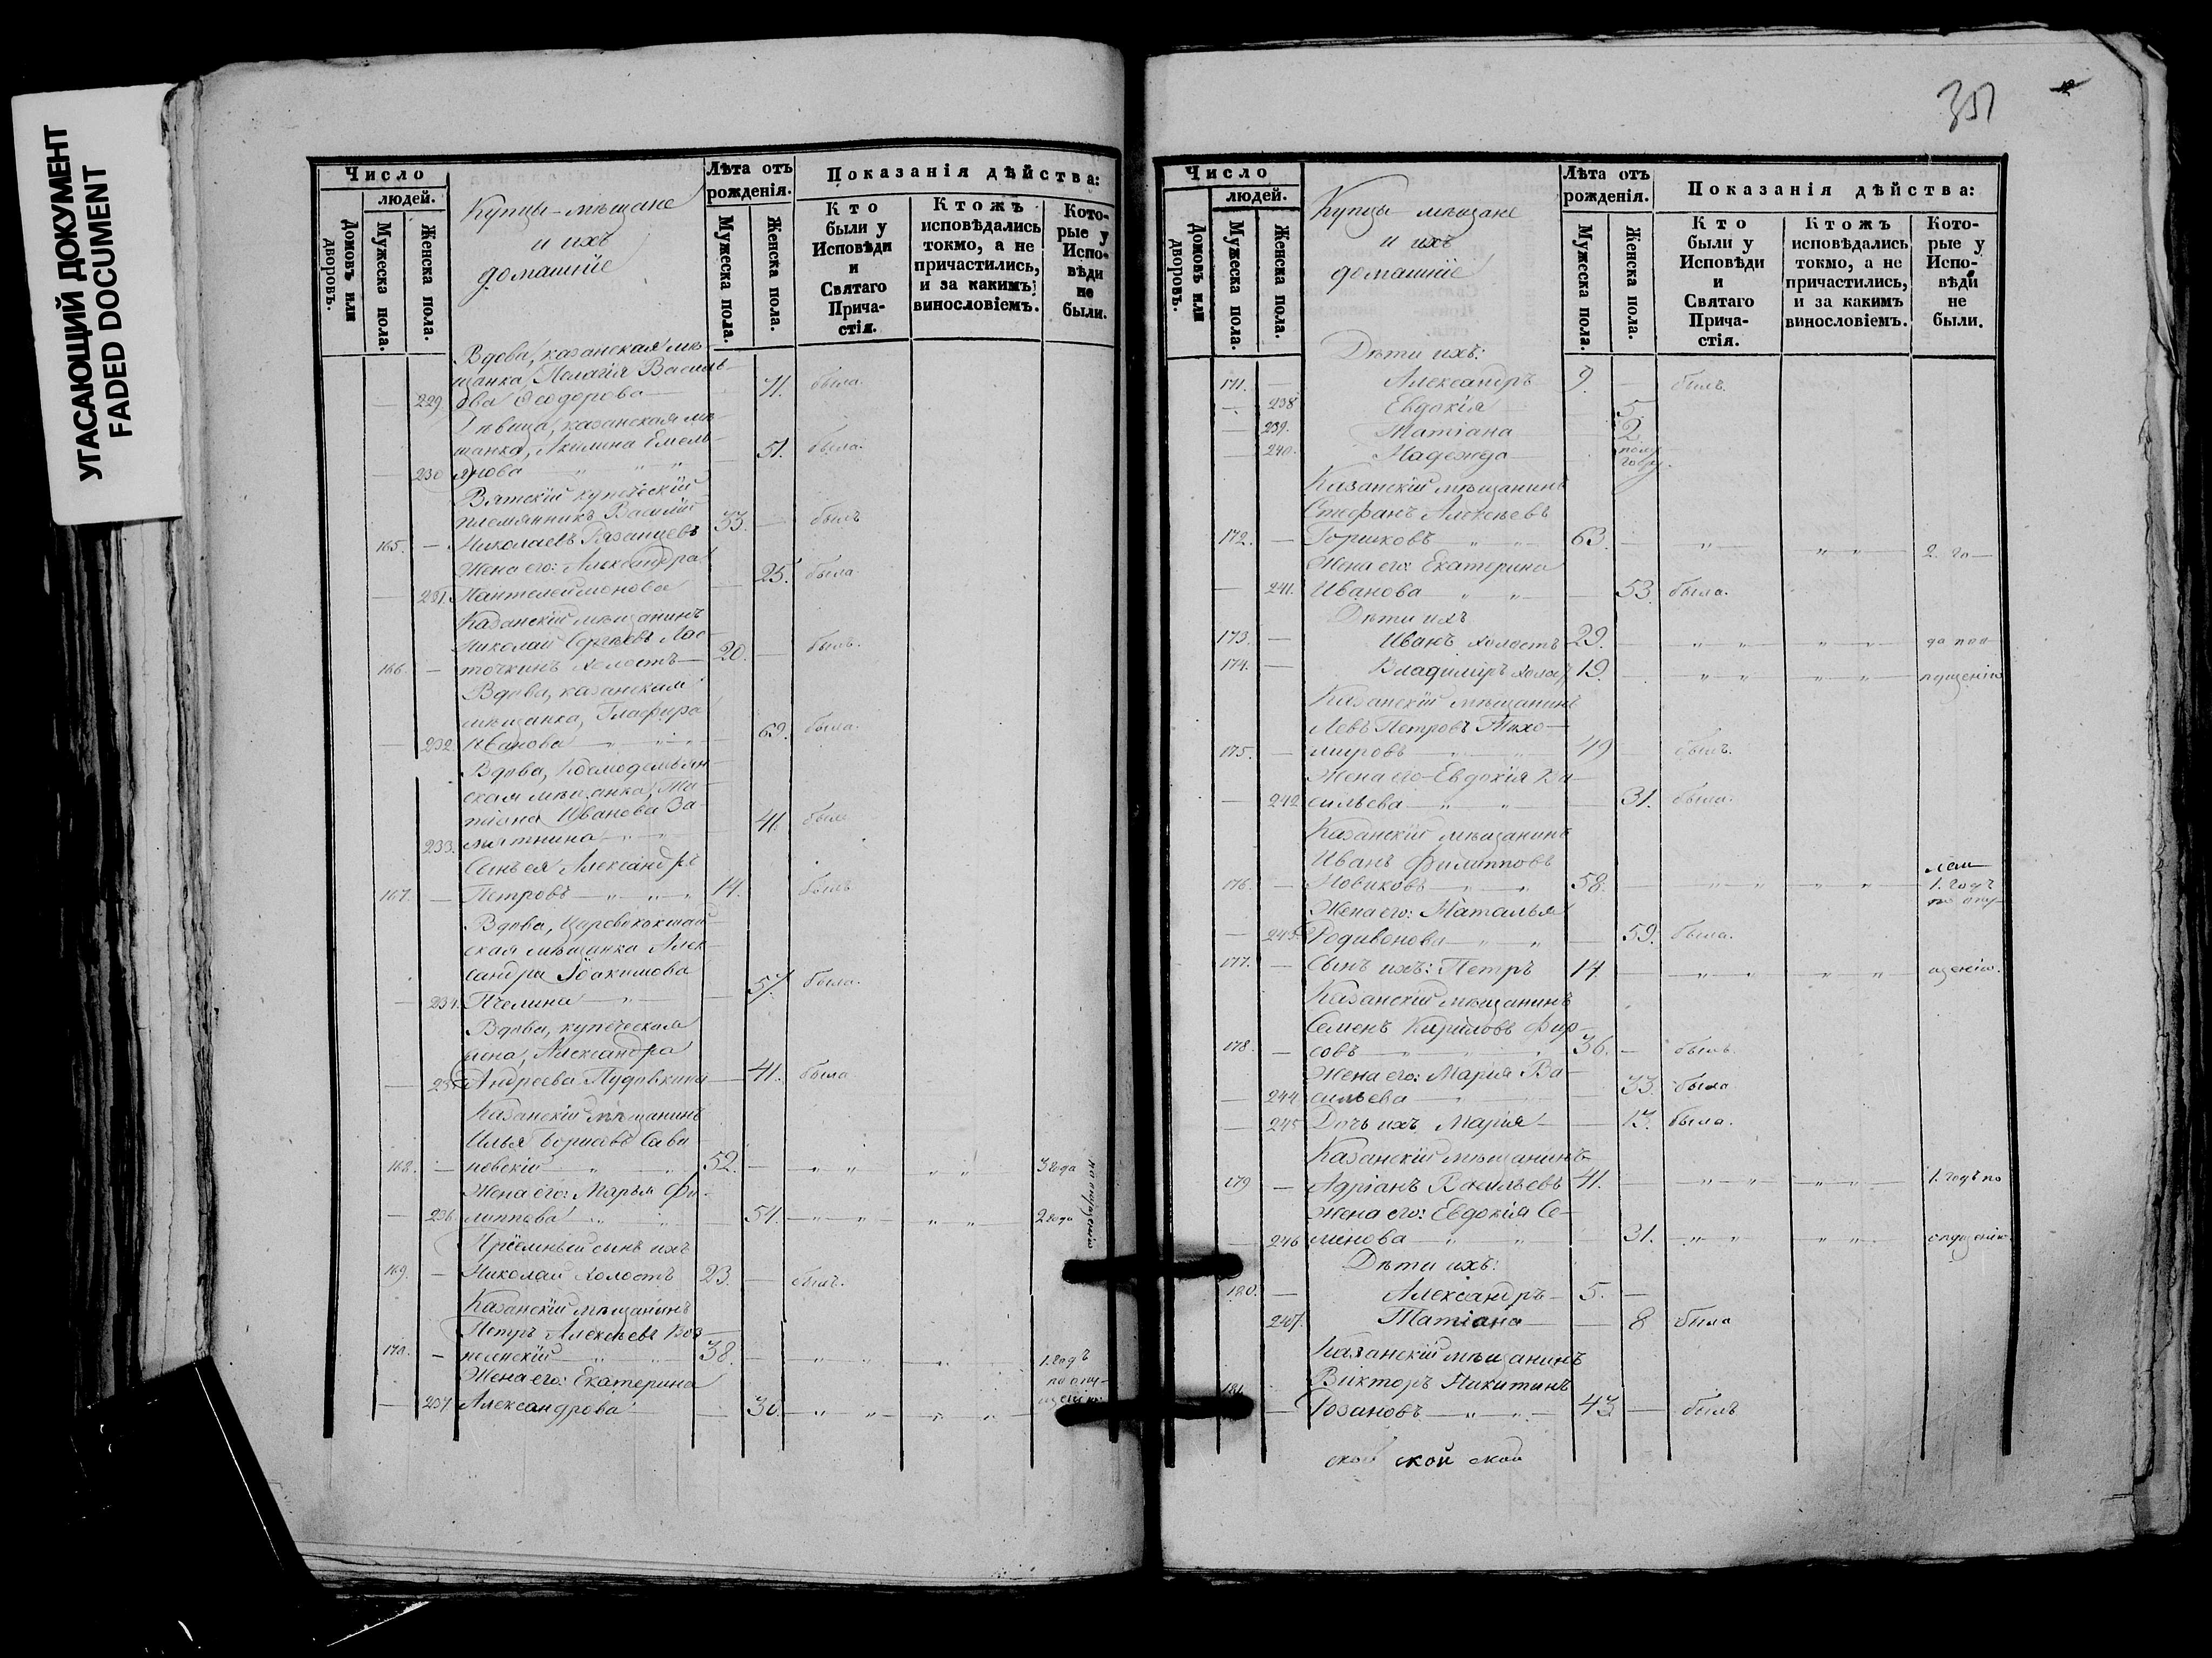 УГАСАЮЩИЙ ДОКУМЕНТ
FADED DOCUMENT
Число
людей.
Домовъ или дворовъ.
Мужеска пола.
Женска пола.
Купцы-мѣщане
и ихъ
домашніе
Лѣта отъ рожденія.
Мужеска пола.
Женска пола.
Показанія дѣйства:
Кто были у Исповѣди и Святаго Причастія.
Ктожъ исповѣдались токмо, а не причастились, и за какимъ винословіемъ.
Которые у Исповѣди не были.
Вдова, казанская мѣ-
щанка, Пелагія Василь-
229 ева Ѳеодорова 71. была.
Дѣвица, казанская мѣ-
щанка, Акилина Емель-
230 янова 51. была.
Вятскій купеческій
племянникъ Василій
165. Николаевъ Рязанцевъ 33. былъ
Жена его: Александра
231. Пантелеймонова 25. была
Казанскій мѣщанинъ
Николай Сергѣевъ Лас-
166. точкинъ холостъ 20. былъ.
Вдова, казанская
мѣщанка, Глафира
232. Иванова 69. была
Вдова, Козмодемьян-
ская мѣщанка, Та-
тіана Иванова За-
233. мятнина 41.
Сынъ ея Александръ
167. Петровъ 14. былъ
Вдова, Царевококшай-
ская мѣщанка Алек-
сандра Іоакимова
234. Пчелина 57. была.
Вдова, купеческая
жена, Александра
235 Андреева Пудовкина 41. была
Казанскій мѣщанинъ
Илья Борисовъ Сави-
168. новскій 52. 3 года
Жена его: Марья Фи-
236 липпова 54. 2 года
по опущенію
Пріемный сынъ ихъ
169. Николай холостъ 23. былъ.
Казанскій мѣщанинъ
Петръ Алексѣевъ Воз-
170. несенскій 38. 1. годъ
Жена его: Екатерина по опу-
237 Александрова 30. щенію
351
Число
людей.
Домовъ или дворовъ.
Мужеска пола.
Женска пола.
Купцы-мѣщане
и ихъ
домашніе
Лѣта отъ рожденія.
Мужеска пола.
Женска пола.
Показанія дѣйства:
Кто были у Исповѣди и Святаго Причастія.
Ктожъ исповѣдались токмо, а не причастились, и за какимъ винословіемъ.
Которые у Исповѣди не были.
Дѣти ихъ:
171. Александръ 9. былъ.
238 Евдокія 5.
239. Татіана 2.
240. Надежда полу-году.
Казанскій мѣщанинъ
Стефанъ Алексѣевъ
172. Горшковъ 63. 2. го-
Жена его: Екатерина
241. Иванова 53. была.
Дѣти ихъ
173. Иванъ холостъ 29. да по о-
174. Владиміръ холос. 19. пущенію
Казанскій мѣщанинъ
Левъ Петровъ Тихо-
175. мировъ 49 былъ.
Жена его Евдокія Ва-
242 сильева 31. была.
Казанскій мѣщанинъ
Иванъ Филипповъ
176. Новиковъ 58. 1. годъ по опу-
Жена его: Наталья
243 Родивонова 59. была.
177. Сынъ ихъ: Петръ 14. щенію.
Казанскій мѣщанинъ
Семенъ Кириловъ Фир-
178. совъ 36. былъ.
Жена его: Марія Ва-
244 сильева 33. была
245 Дочь ихъ Марія 13. была.
Казанскій мѣщанинъ
179 Адріанъ Васильевъ 41. 1. годъ по
Жена его: Евдокія Се-
246 менова 31. опущенію
Дѣти ихъ:
180. Александръ 5.
247. Татіана 8 была
Казанскій мѣщанинъ
Викторъ Никитинъ
181. Розановъ 43 былъ
ской ской ской